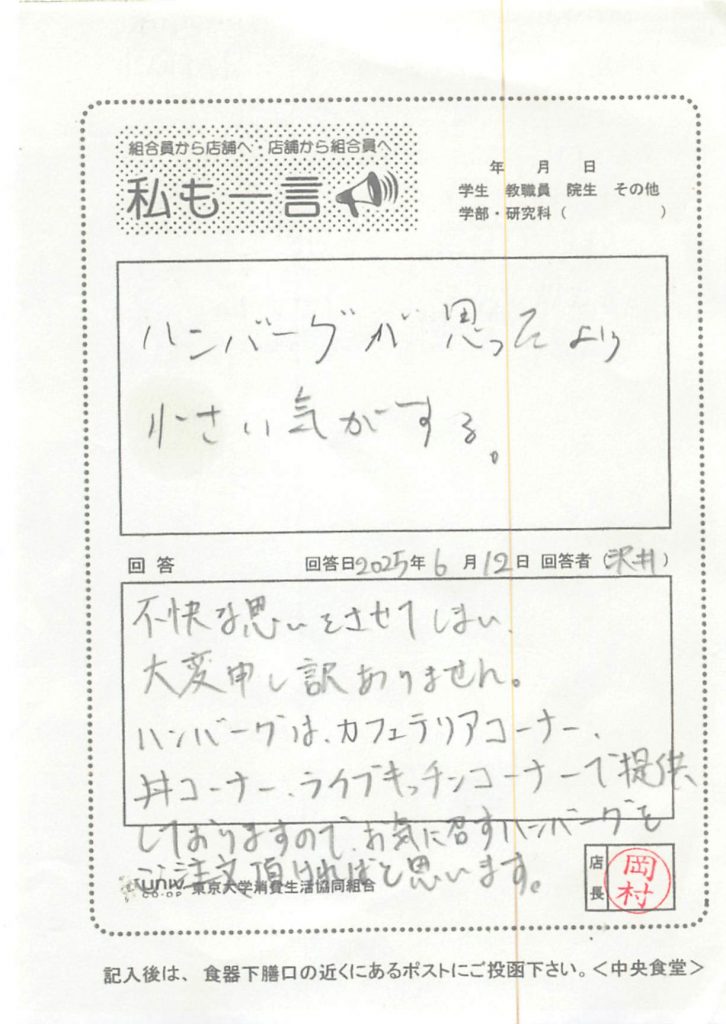 組合員から店舗へ・店舗から組合員へ
私も一言
年 月 日
学生 教職員 院生 その他
学部・研究科( )
ハンバーグが思ったより
小さい気がする。
回答 回答日2025年6月12日 回答者(沢井)
不快な思いをさせてしまい、
大変申し訳ありません。
ハンバーグは、カフェテリアコーナー、
丼コーナー、ライブキッチンコーナーで提供
しておりますので、お気に召すハンバーグを
ご注文頂ければと思います。
univ 東京大学消費生活協同組合
店長 岡村
記入後は、食器下膳口の近くにあるポストにご投函下さい。<中央食堂>